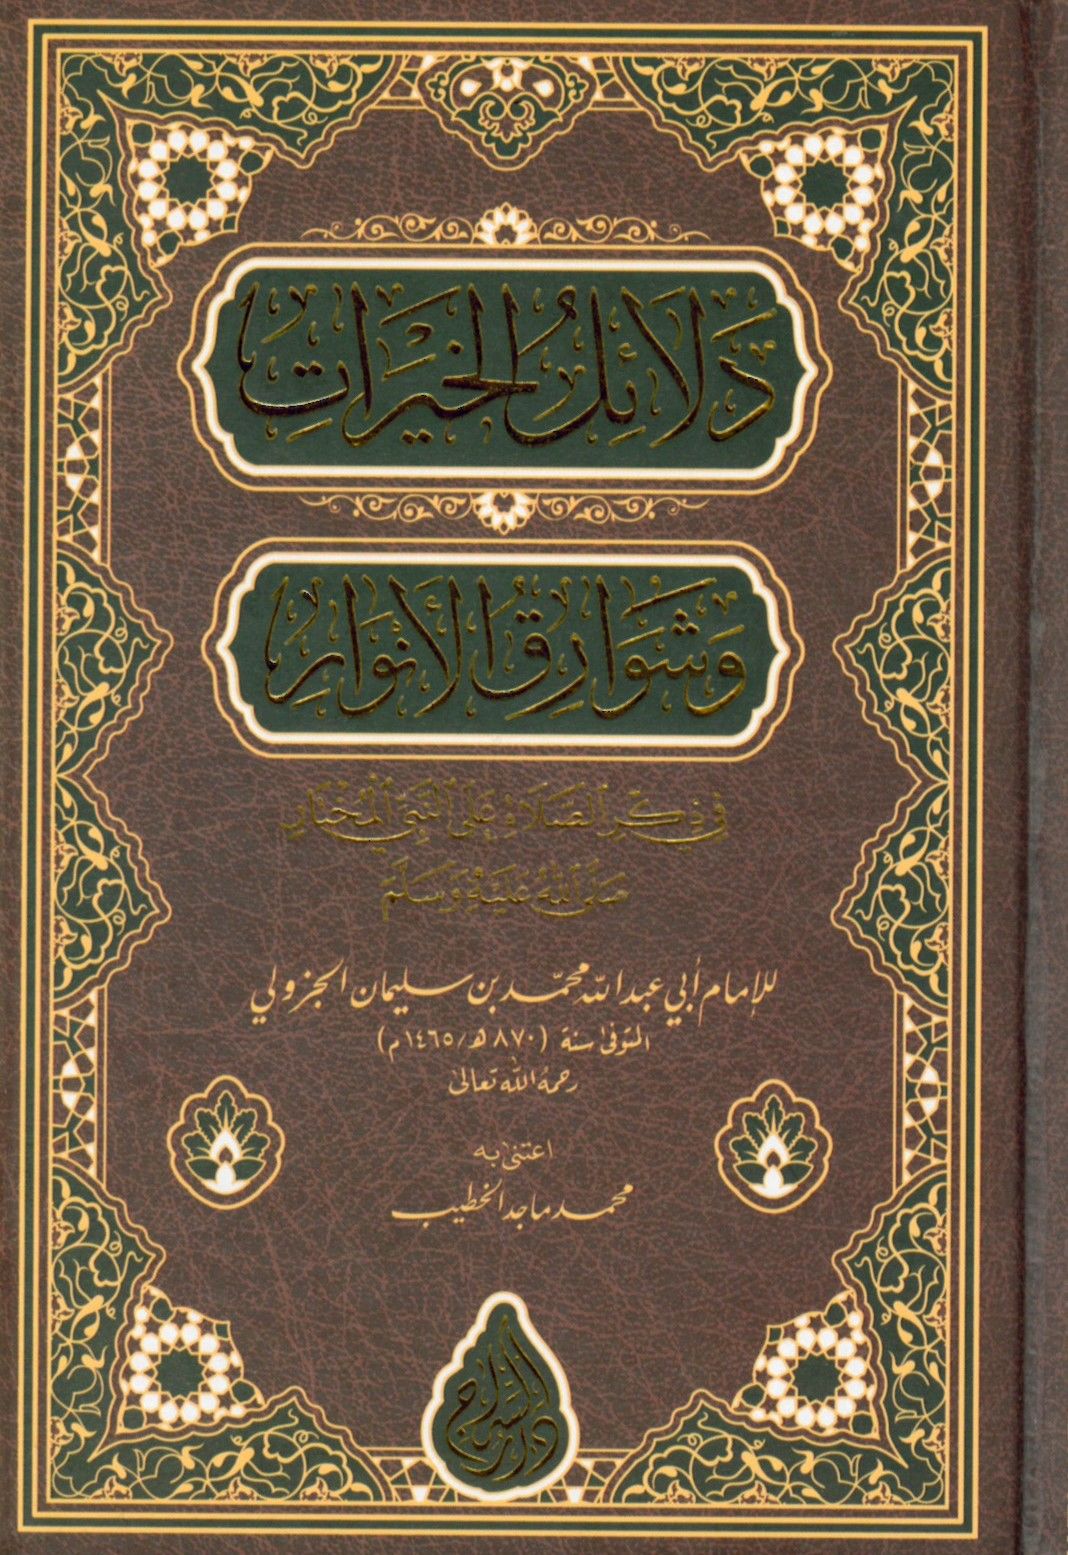 دَلَائِلُ الْخَيْرَاتِ
وَشَوَارِقُ الْأَنْوَارِ
فِي ذِكْرِ الصَّلَاةِ عَلَى النَّبِيِّ الْمُخْتَارِ
صَلَّى اللهُ عَلَيْهِ وَسَلَّمَ
للإمام أبي عبد الله محمّد بن سليمان الجزولي
المتوفى سنة (٨٧٠هـ/١٤٦٥م)
رحمه الله تعالى
اعتنى به
محمد ماجد الخطيب
دار السراج